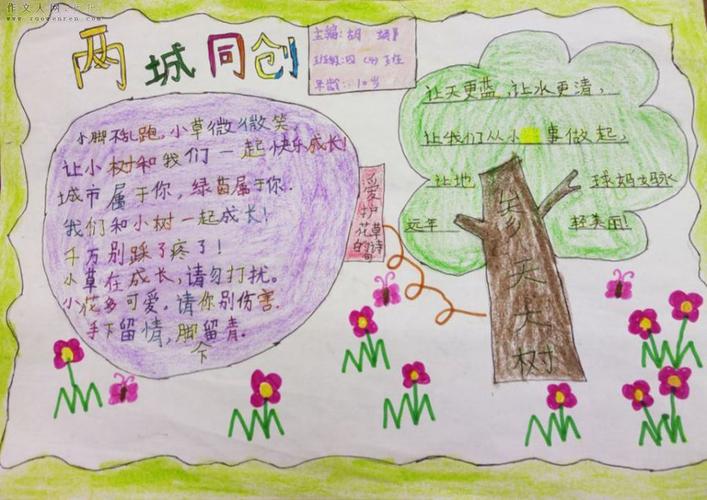 作文人网
www.zuowenren.com
两城同创
主编:胡
班级:四
年龄:10岁
小脚不乱跑,小草微微笑
让小树和我们一起快乐成长!
城市属于你,绿苗属于你.
我们和小树一起成长!
千万别踩了疼了!
小草在成长,请勿打扰。
小花多可爱,请你别伤害.
手下留情,脚下留青.
爱护花草的诗句
让天更蓝,让水更清,
让我们从小事做起,
让地球妈妈永
远年轻美丽!
参天大树